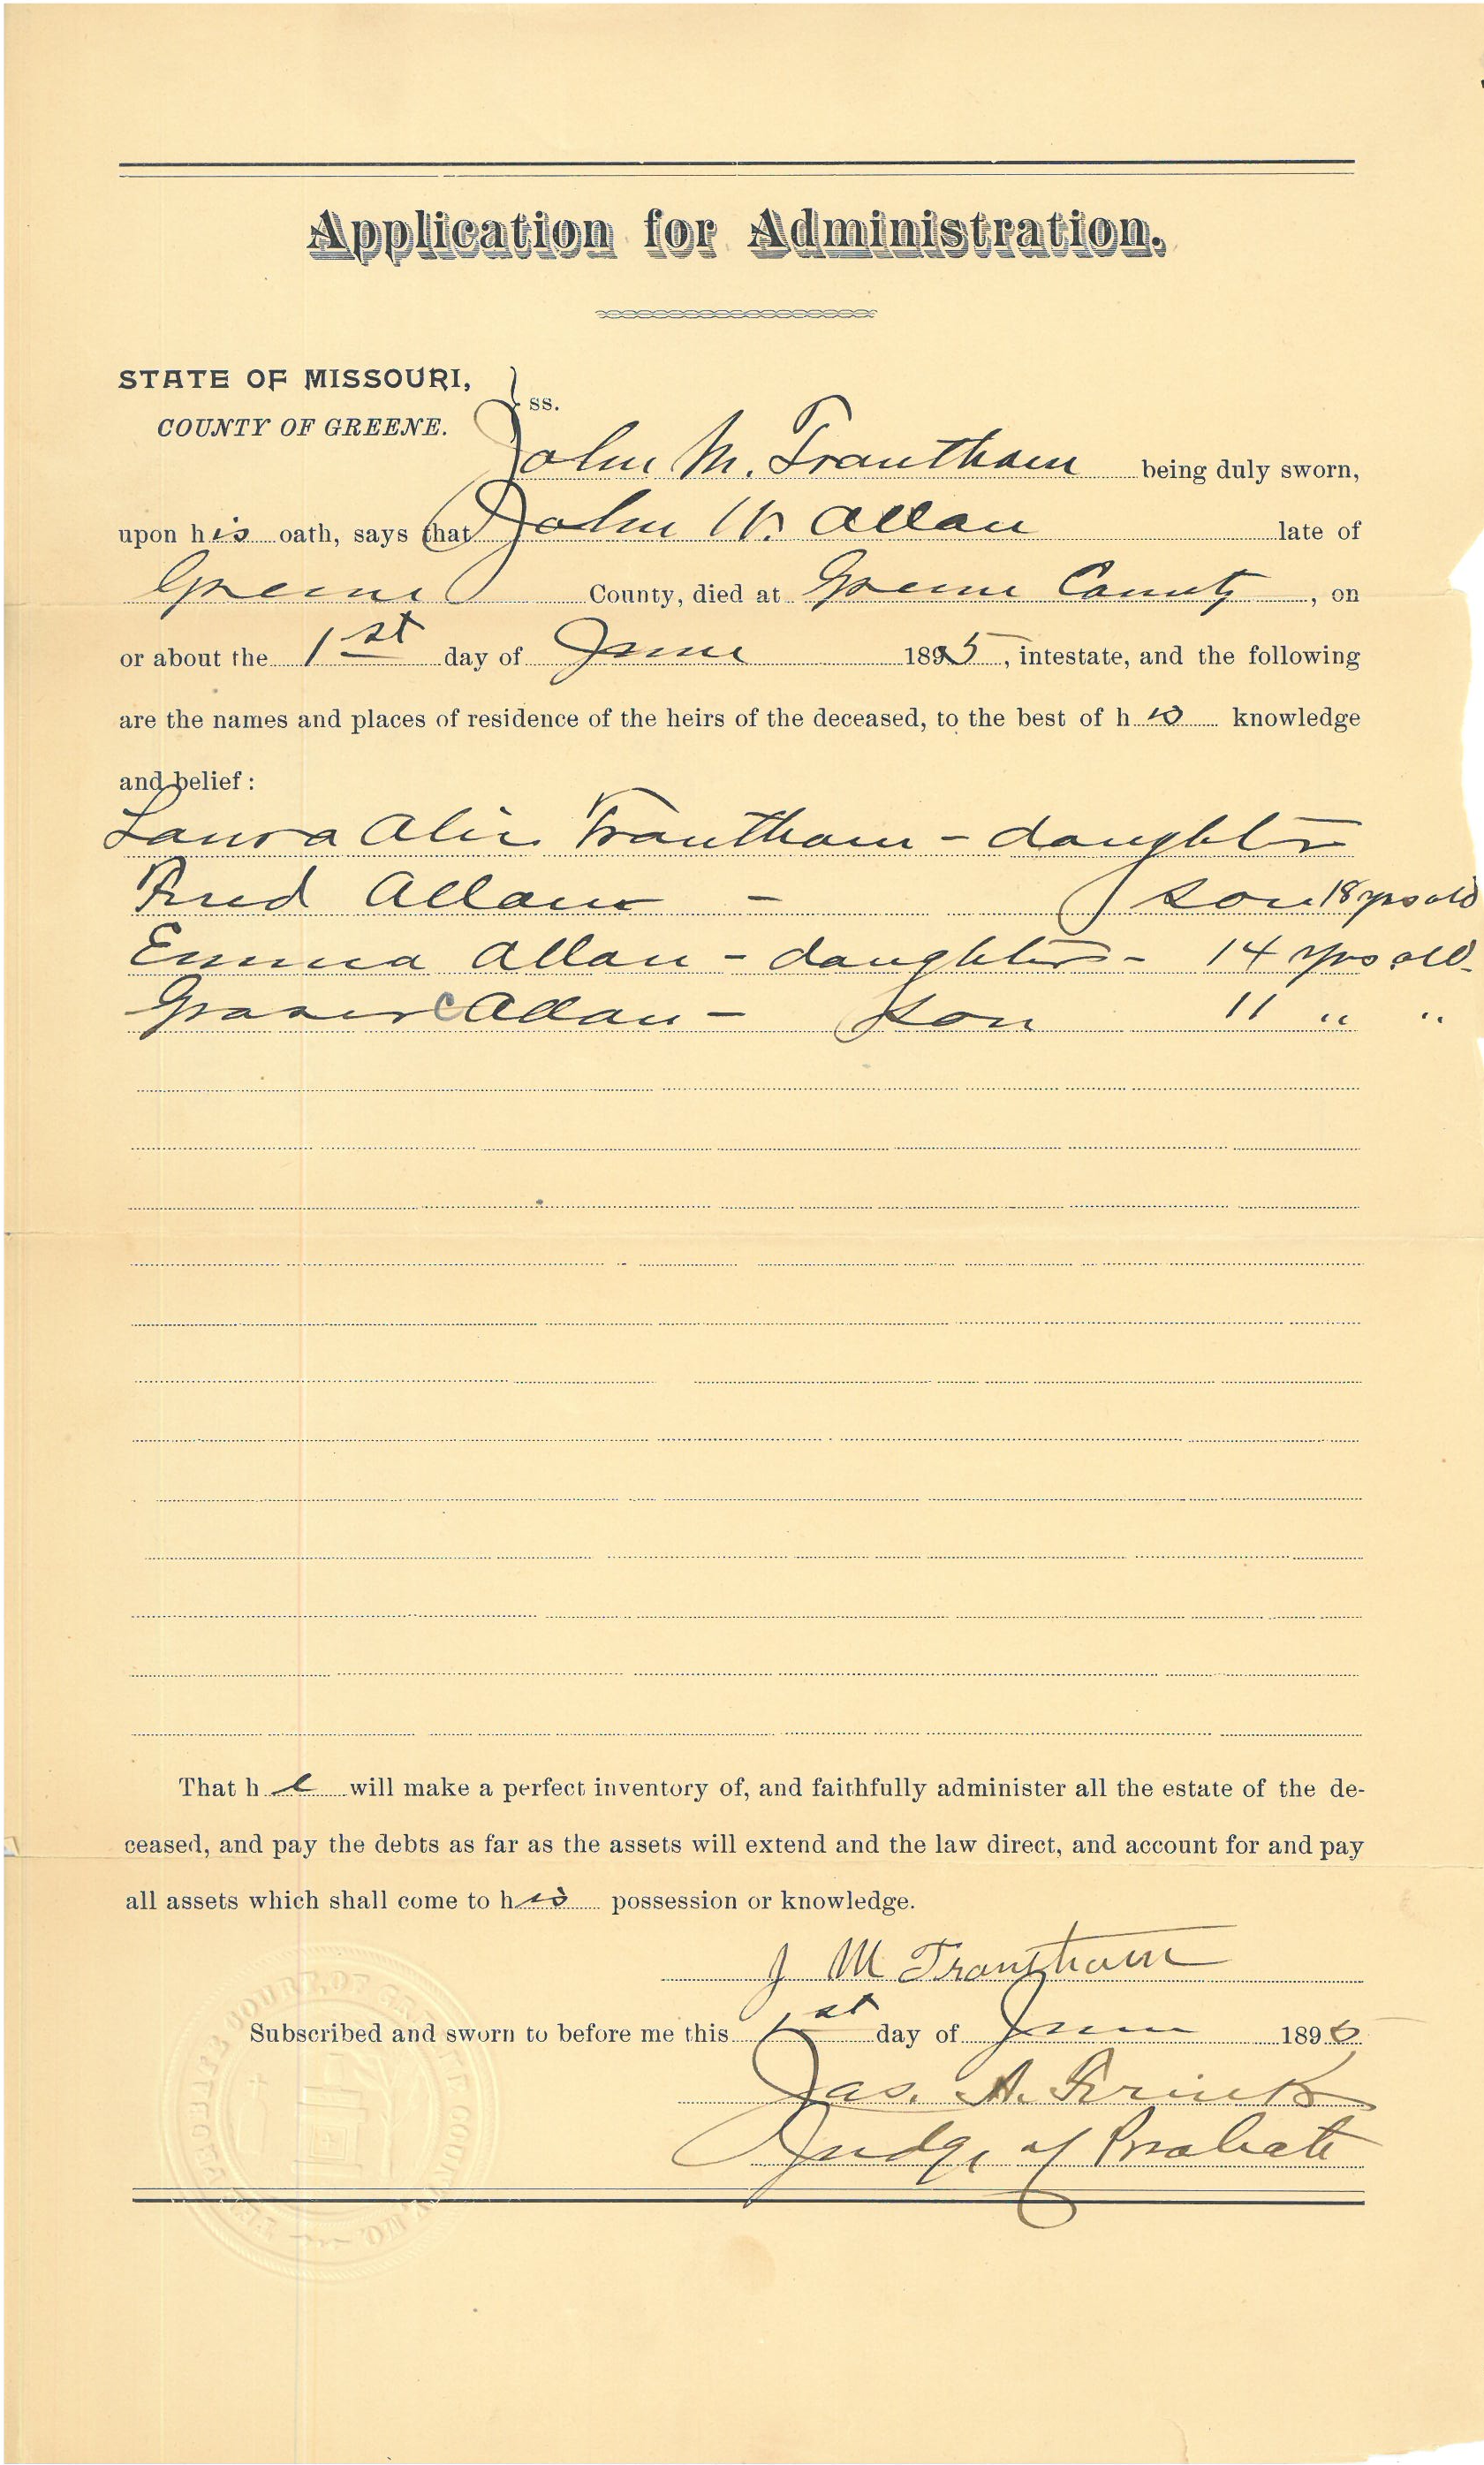 Application for Administration.
STATE OF MISSOURI,
COUNTY OF GREENE. } ss.
John M. Trantham being duly sworn,
upon his oath, says that John W. Allan late of
Greene County, died at Greene County, on
or about the 1st day of June 1895, intestate, and the following
are the names and places of residence of the heirs of the deceased, to the best of his knowledge
and belief:
Laura Alice Trantham - daughter
Fred Allan - son 18 yrs old
Emma Allan - daughter - 14 yrs old
C Allan - son 11 " "
That he will make a perfect inventory of, and faithfully administer all the estate of the de-
ceased, and pay the debts as far as the assets will extend and the law direct, and account for and pay
all assets which shall come to his possession or knowledge.
J M Trantham
Subscribed and sworn to before me this 1st day of June 189
Jas. A. Frink
Judge of Probate
PROBATE COURT OF GREENE COUNTY MO.